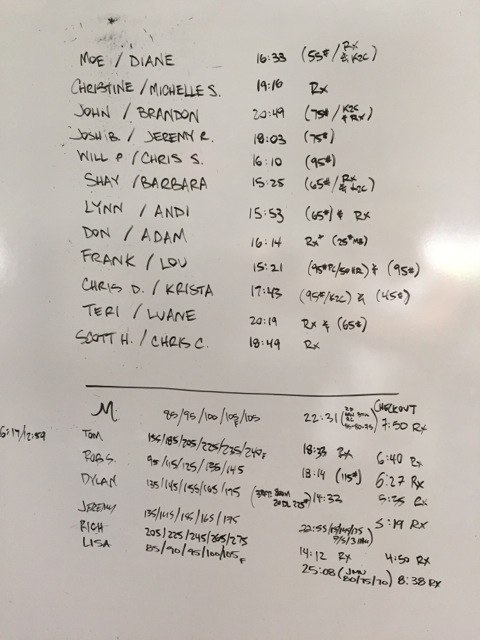 MOE / DIANE 16:33 (55# / Rx & K2C)
CHRISTINE / MICHELLE S. 19:16 Rx
JOHN / BRANDON 20:49 (75# / K2C & Rx)
JOSH B / JEREMY R. 18:03 (75#)
WILL P / CHRIS S. 16:10 (95#)
SHAY / BARBARA 15:25 (65# / Rx &
LYNN / ANDI 15:53 (65#) & Rx
DON / ADAM 16:14 Rx+ (25# MB)
FRANK / LOU 15:21 & (95#)
CHRIS D. / KRISTA 17:43 (95#/K2C) & (45#)
TERI / LUANE 20:19 Rx & (65#)
SCOTT H. / CHRIS C. 18:49 Rx
CHECKOUT
M 85/95/100/105F/105 22:31 7:50 Rx
TOM 155/185/205/225/235/240F 18:33 Rx 6:40 Rx
ROB S. 95/115/125/135/145 18:14 (115#) 6:27 Rx
DYLAN 135/145/155/165/175 14:32 5:35 Rx
JEREMY 135/145/155/165/175 5:19 Rx
RICH 205/225/245/265/275 14:12 Rx 4:50 Rx
LISA 85/90/95/100/105F 25:08 80/75/70) 8:38 Rx